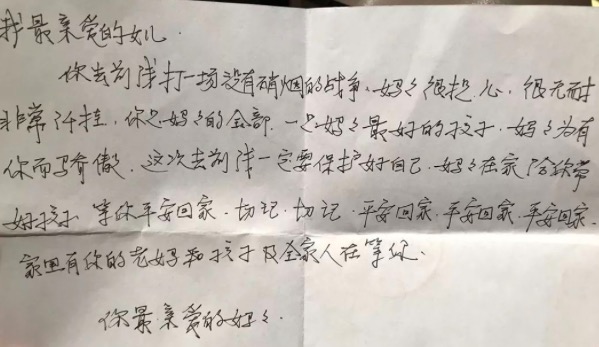 我最亲爱的女儿.
你去前线打一场没有硝烟的战争、妈々很担心，很无耐
非常牵挂，你是妈々的全部，一是妈々最好的孩子，妈々为有
你而骄傲，这次去前线一定要保护好自己.妈々在家给你带
好孩子，等你平安回家.切记.切记.平安回家.平安回家.平安回家.
家里有你的老妈和孩子及全家人在等你.
你最亲爱的妈々.